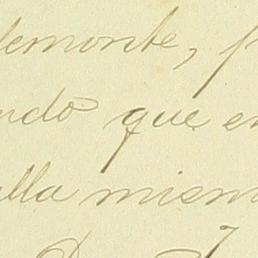 demonte, p
ndo que en
ulla mism